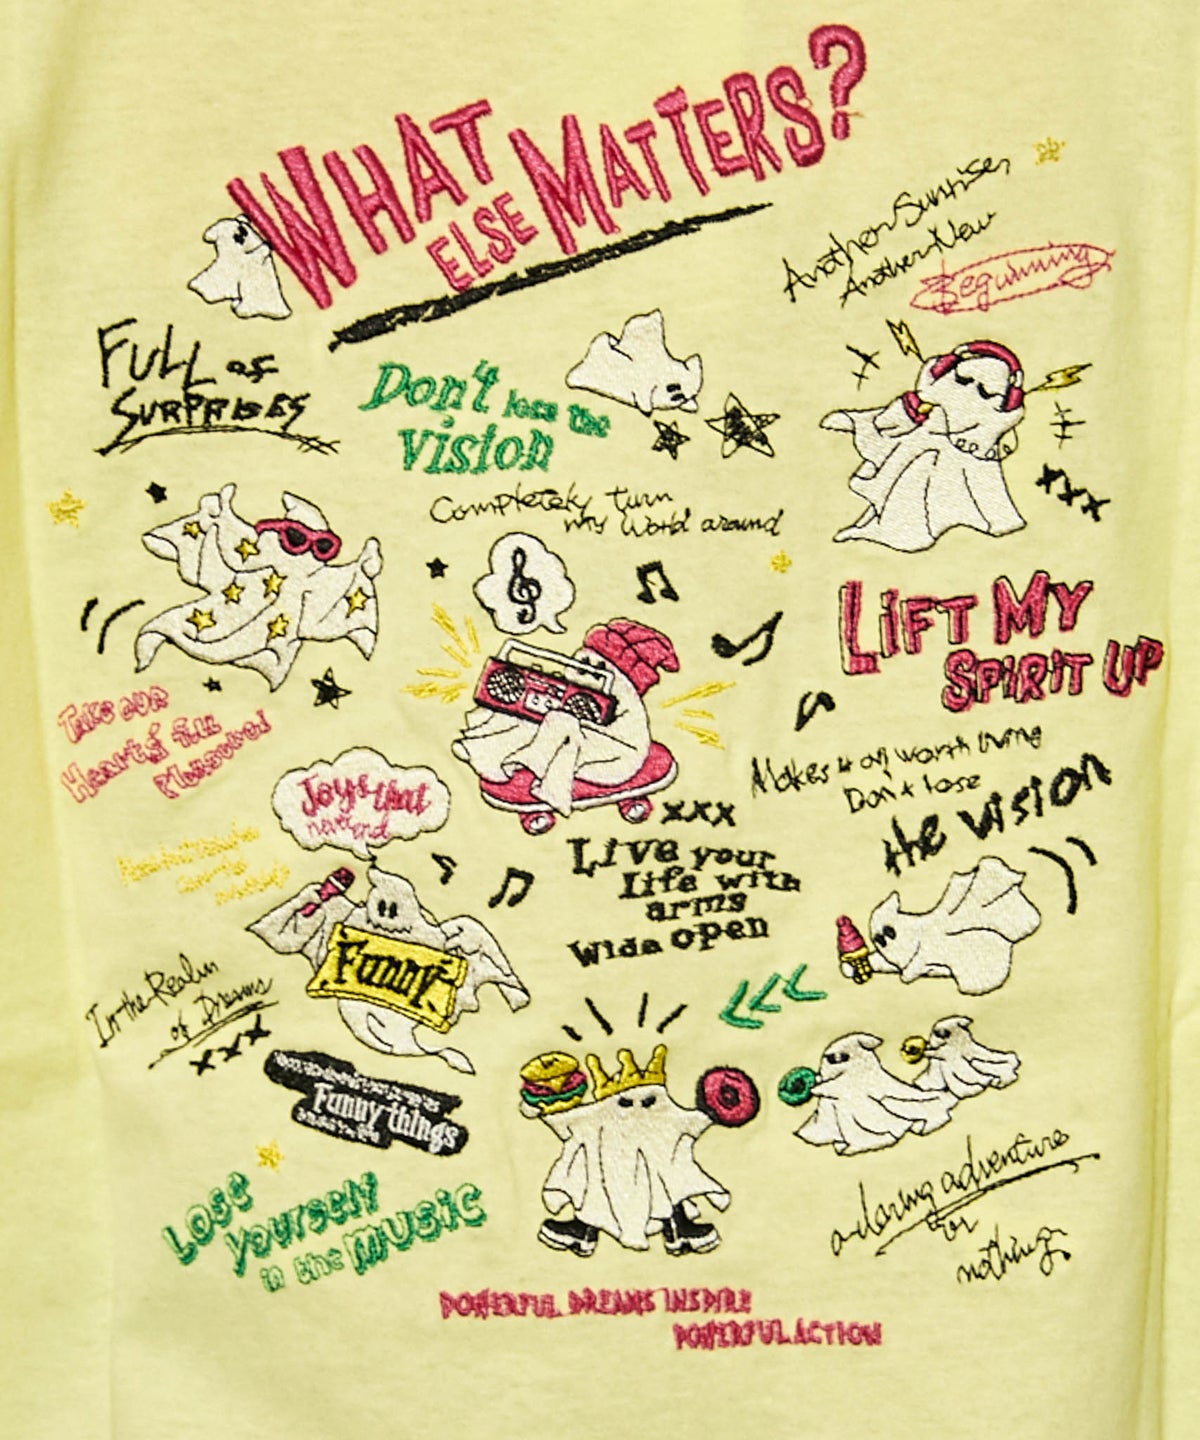 WHAT
ELSE MATTERS?
Another Sunrise,
Another New
Beginning
FULL OF
SURPRISES
Don't lose the
Vision
Completely turn
my World around
LIFT MY
SPIRIT UP
Take our
Hearts fill
Makes it all worth living
Don't lose
the vision
Joys that
never end
Live your
life with
arms
Wide open
Funny
In the Realm
of Dreams
xxx
Funny things
Lose
yourself
in the MUSIC
a daring adventure
or
nothing
POWERFUL DREAMS INSPIRE
POWERFUL ACTION